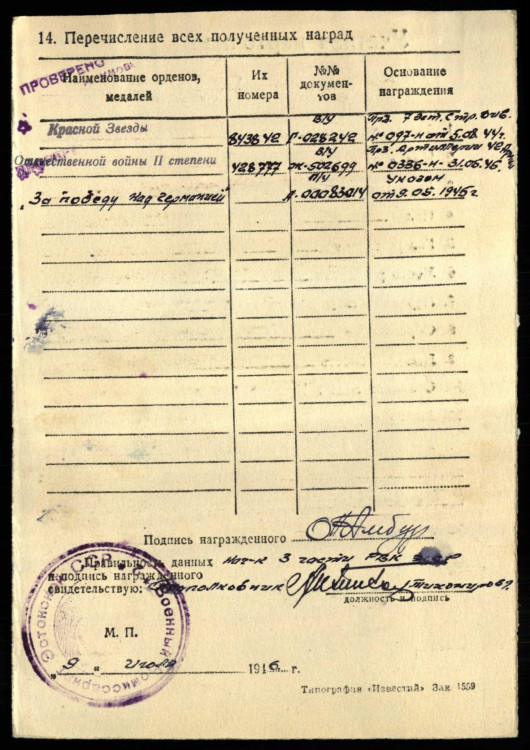 14. Перечисление всех полученных наград
ПРОВЕРЕНО
Наименование орденов, медалей
Их номера
№№ документов
Основание награждения
В/У Пр. 7 Эст. Стр. Див.
Красной Звезды 843642 Г-028242 № 097-н от 5.08.44г.
В/У Пр. Артиллерии 42
Отечественной войны II степени 428777 Ж-502699 № 0336-н-31.05.45
П/У Указом
„За победу над Германией" А.00083014 от 9.05.1945г
Подпись награжденного
Правильность данных Нач-к 3 части РВК
и подпись награжденного
свидетельствую: Подполковник
должность и подпись
Эстонской ССР Военный Комиссариат
М. П.
„9 " июля 1946 г.
Типография «Известий» Зак. 1559